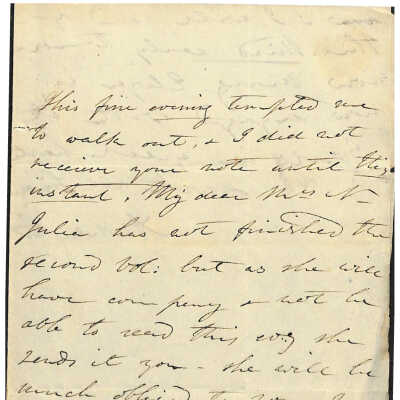 This fine evening tempted me
to walk out, & I did not
receive your note until this
instant, My dear Mrs N—
Julia has not finished the
second Vol: but as she will
have company & not be
able to read this evg she
sends it you - she will be
much obliged to you